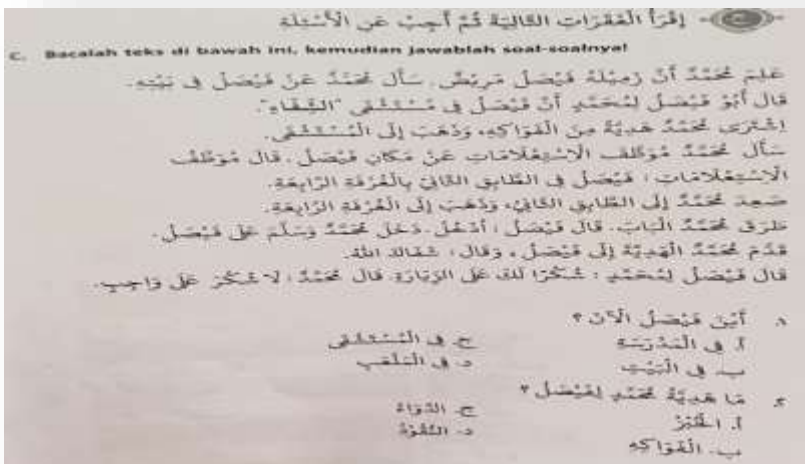 إِقْرَأْ الْفَقَرَاتِ التَّالِيَةَ ثُمَّ أَجِبْ عَنِ الْأَسْئِلَةِ
C. Bacalah teks di bawah ini, kemudian jawablah soal-soalnya!
عَلِمَ مُحَمَّدٌ أَنَّ زَمِيْلَهُ فَيْصَلْ مَرِيْضٌ. سَأَلَ مُحَمَّدٌ عَنْ فَيْصَلْ فِي بَيْتِهِ.
قَالَ أَبُوْ فَيْصَلْ لِمُحَمَّدٍ أَنَّ فَيْصَلْ فِي مُسْتَشْفَى "الشِّفَاءِ".
اِشْتَرَى مُحَمَّدٌ هَدِيَّةً مِنَ الْفَوَاكِهِ، وَذَهَبَ إِلَى الْمُسْتَشْفَى.
سَأَلَ مُحَمَّدٌ مُوَظَّفَ الْاِسْتِعْلَامَاتِ عَنْ مَكَانِ فَيْصَلْ. قَالَ مُوَظَّفُ
الْاِسْتِعْلَامَاتِ : فَيْصَلْ فِي الطَّابِقِ الثَّانِيْ بِالْغُرْفَةِ الرَّابِعَةِ.
صَعِدَ مُحَمَّدٌ إِلَى الطَّابِقِ الثَّانِيْ، وَذَهَبَ إِلَى الْغُرْفَةِ الرَّابِعَةِ.
طَرَقَ مُحَمَّدٌ الْبَابَ. قَالَ فَيْصَلْ : أُدْخُلْ. دَخَلَ مُحَمَّدٌ وَسَلَّمَ عَلَى فَيْصَلْ.
قَدَّمَ مُحَمَّدٌ الْهَدِيَّةَ إِلَى فَيْصَلْ، وَقَالَ : شَفَاكَ اللهُ.
قَالَ فَيْصَلْ لِمُحَمَّدٍ : شُكْرًا لَكَ عَلَى الزِّيَارَةِ. قَالَ مُحَمَّدٌ : لَا شُكْرَ عَلَى وَاجِبٍ.
١. أَيْنَ فَيْصَلْ الْآنَ ؟
أ. فِي الْمَدْرَسَةِ ج. فِي الْمُسْتَشْفَى
ب. فِي الْبَيْتِ د. فِي الْمَلْعَبِ
٢. مَا هَدِيَّةُ مُحَمَّدٍ لِفَيْصَلْ ؟
أ. الْخُبْزُ ج. الدَّوَاءُ
ب. الْفَوَاكِهِ د. النُّقُوْدُ